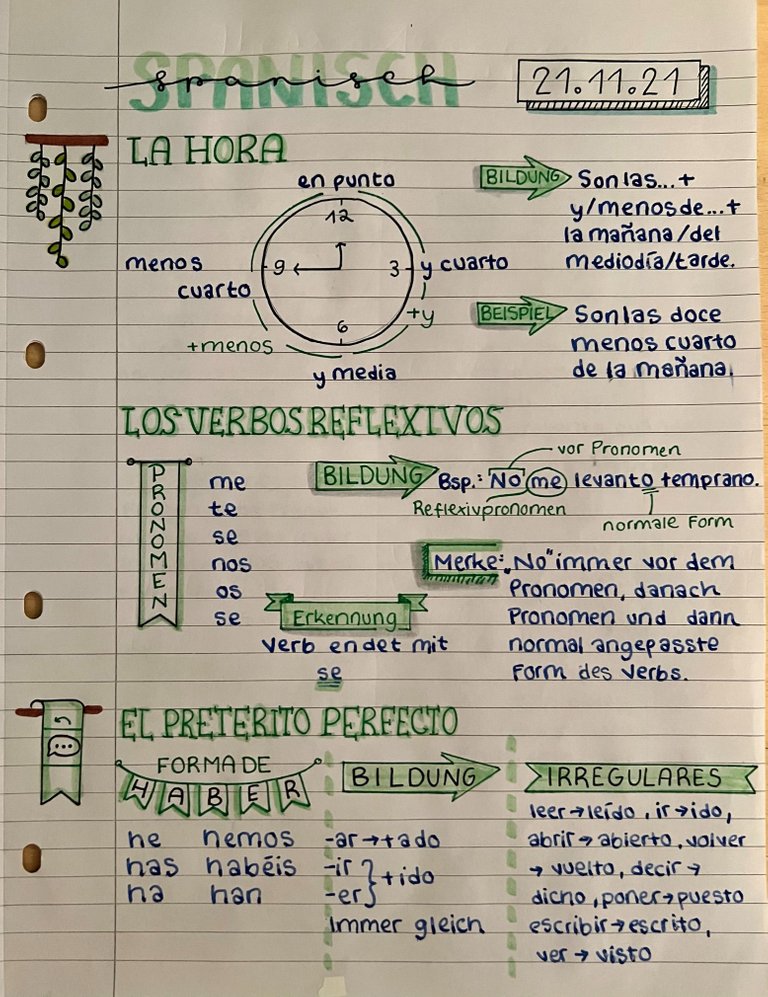 SPANISCH
spanisch
21.11.21
LA HORA
en punto
12
menos
cuarto
9
3
y cuarto
+y
6
+menos
y media
BILDUNG
Son las...+
y/menos de...+
la mañana/del
mediodía/tarde.
BEISPIEL
Son las doce
menos cuarto
de la mañana.
LOS VERBOS REFLEXIVOS
PRONOMEN
me
te
se
nos
os
se
BILDUNG
vor Pronomen
Bsp.: No me levanto temprano.
Reflexivpronomen
normale Form
Merke: „No" immer vor dem
Pronomen, danach
Pronomen und dann
normal angepasste
Form des Verbs.
Erkennung
Verb endet mit
se
EL PRETERITO PERFECTO
FORMA DE
HABER
he hemos
has habéis
ha han
BILDUNG
-ar→+ado
-ir
-er } +ido
Immer gleich
IRREGULARES
leer→leído, ir→ido,
abrir→abierto, volver
→vuelto, decir→
dicho, poner→puesto
escribir→escrito,
ver→visto